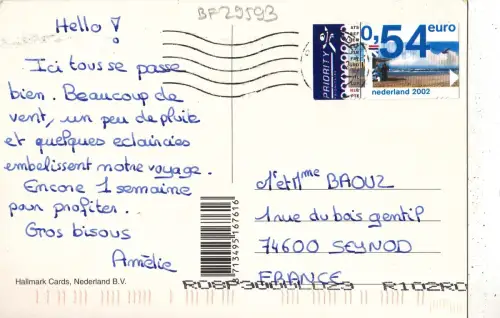 BF29593
Hello !
Ici tous se passe
bien. Beaucoup de
vent, un peu de pluie
et quelques eclaircies
embelissent notre voyage.
Encore 1 semaine
pour profiter..
Gros bisous
Amélie
Hallmark Cards, Nederland B.V.
7 13495 167616
PRIORITY
0,54 euro
nederland 2002
M et Mme BAOUZ
1 rue du bois gentil
74600 SEYNOD
FRANCE